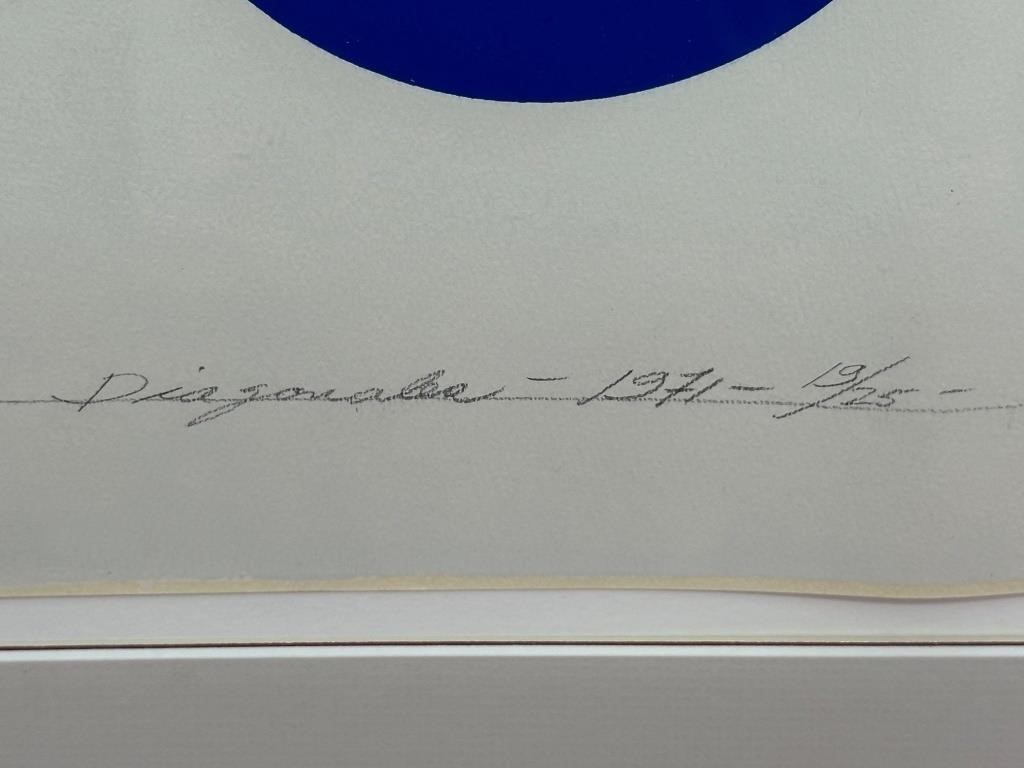 Diagonales - 1971 - 19/25 -